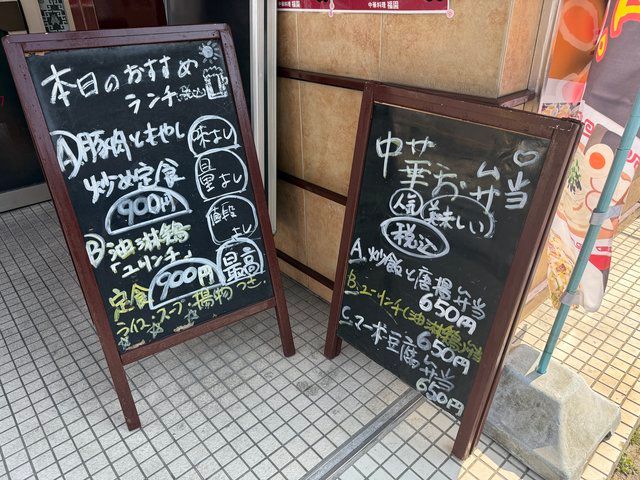 中華料理 福園
本日のおすすめ
ランチ
A 豚肉ともやし
炒め定食
900円
味よし
量よし
値段よし
最高
B 油淋鶏
「ユーリンチ」
定食 900円
ライス、スープ、揚物つき
中華お弁当
人気 美味しい
税込
A. 炒飯と唐揚弁当
650円
B. ユーリンチ(油淋鶏)弁当
650円
C. マーボー豆腐弁当
650円